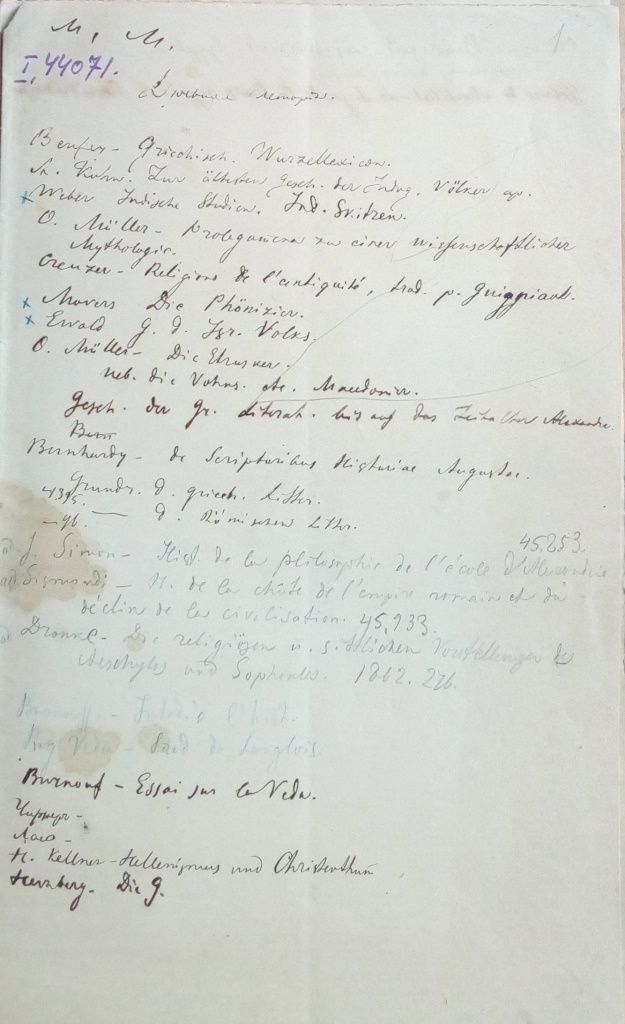 М. М.
1
I, 44071.
Древная история.
Benfey - Griechisch. Wurzellexicon.
A. Kuhn. Zur ältesten Gesch. der Indog. Völker
x Weber Indische Studien. Ind. Skitzen.
O. Müller - Prolegomena zu einer wissenschaftlicher
Mythologie.
Creuzer - Religions de l'antiquité, trad. p. Guigniaut.
x Movers Die Phönizier.
x Ewald G. d. Isr. Volks.
O. Müller - Die Etrusker.
die Macedonier.
Gesch. der Gr. Literat. bis auf das Zeitalter Alexandre.
Bern
Bernhardy - de Scriptoribus Historiae Augustae.
Grundr. d. griech. Litter.
4395. — d. Römischen Litter.
- 96.
45.253.
J. Simon - Hist. de la philosophie de l'école d'Alexandrie
Sismondi - H. de la chûte de l'empire romain et du
déclin de la civilisation. 45,933.
Dronke - Die religiösen u. sittlichen Vorstellungen des
Aeschylos und Sophocles. 1862. 276.
Burnouf - l'hist.
Rig Veda - trad. de Langlois
Burnouf - Essai sur le Veda.
H. Kellner - Hellenismus und Christenthum
Hernberg. Die G.